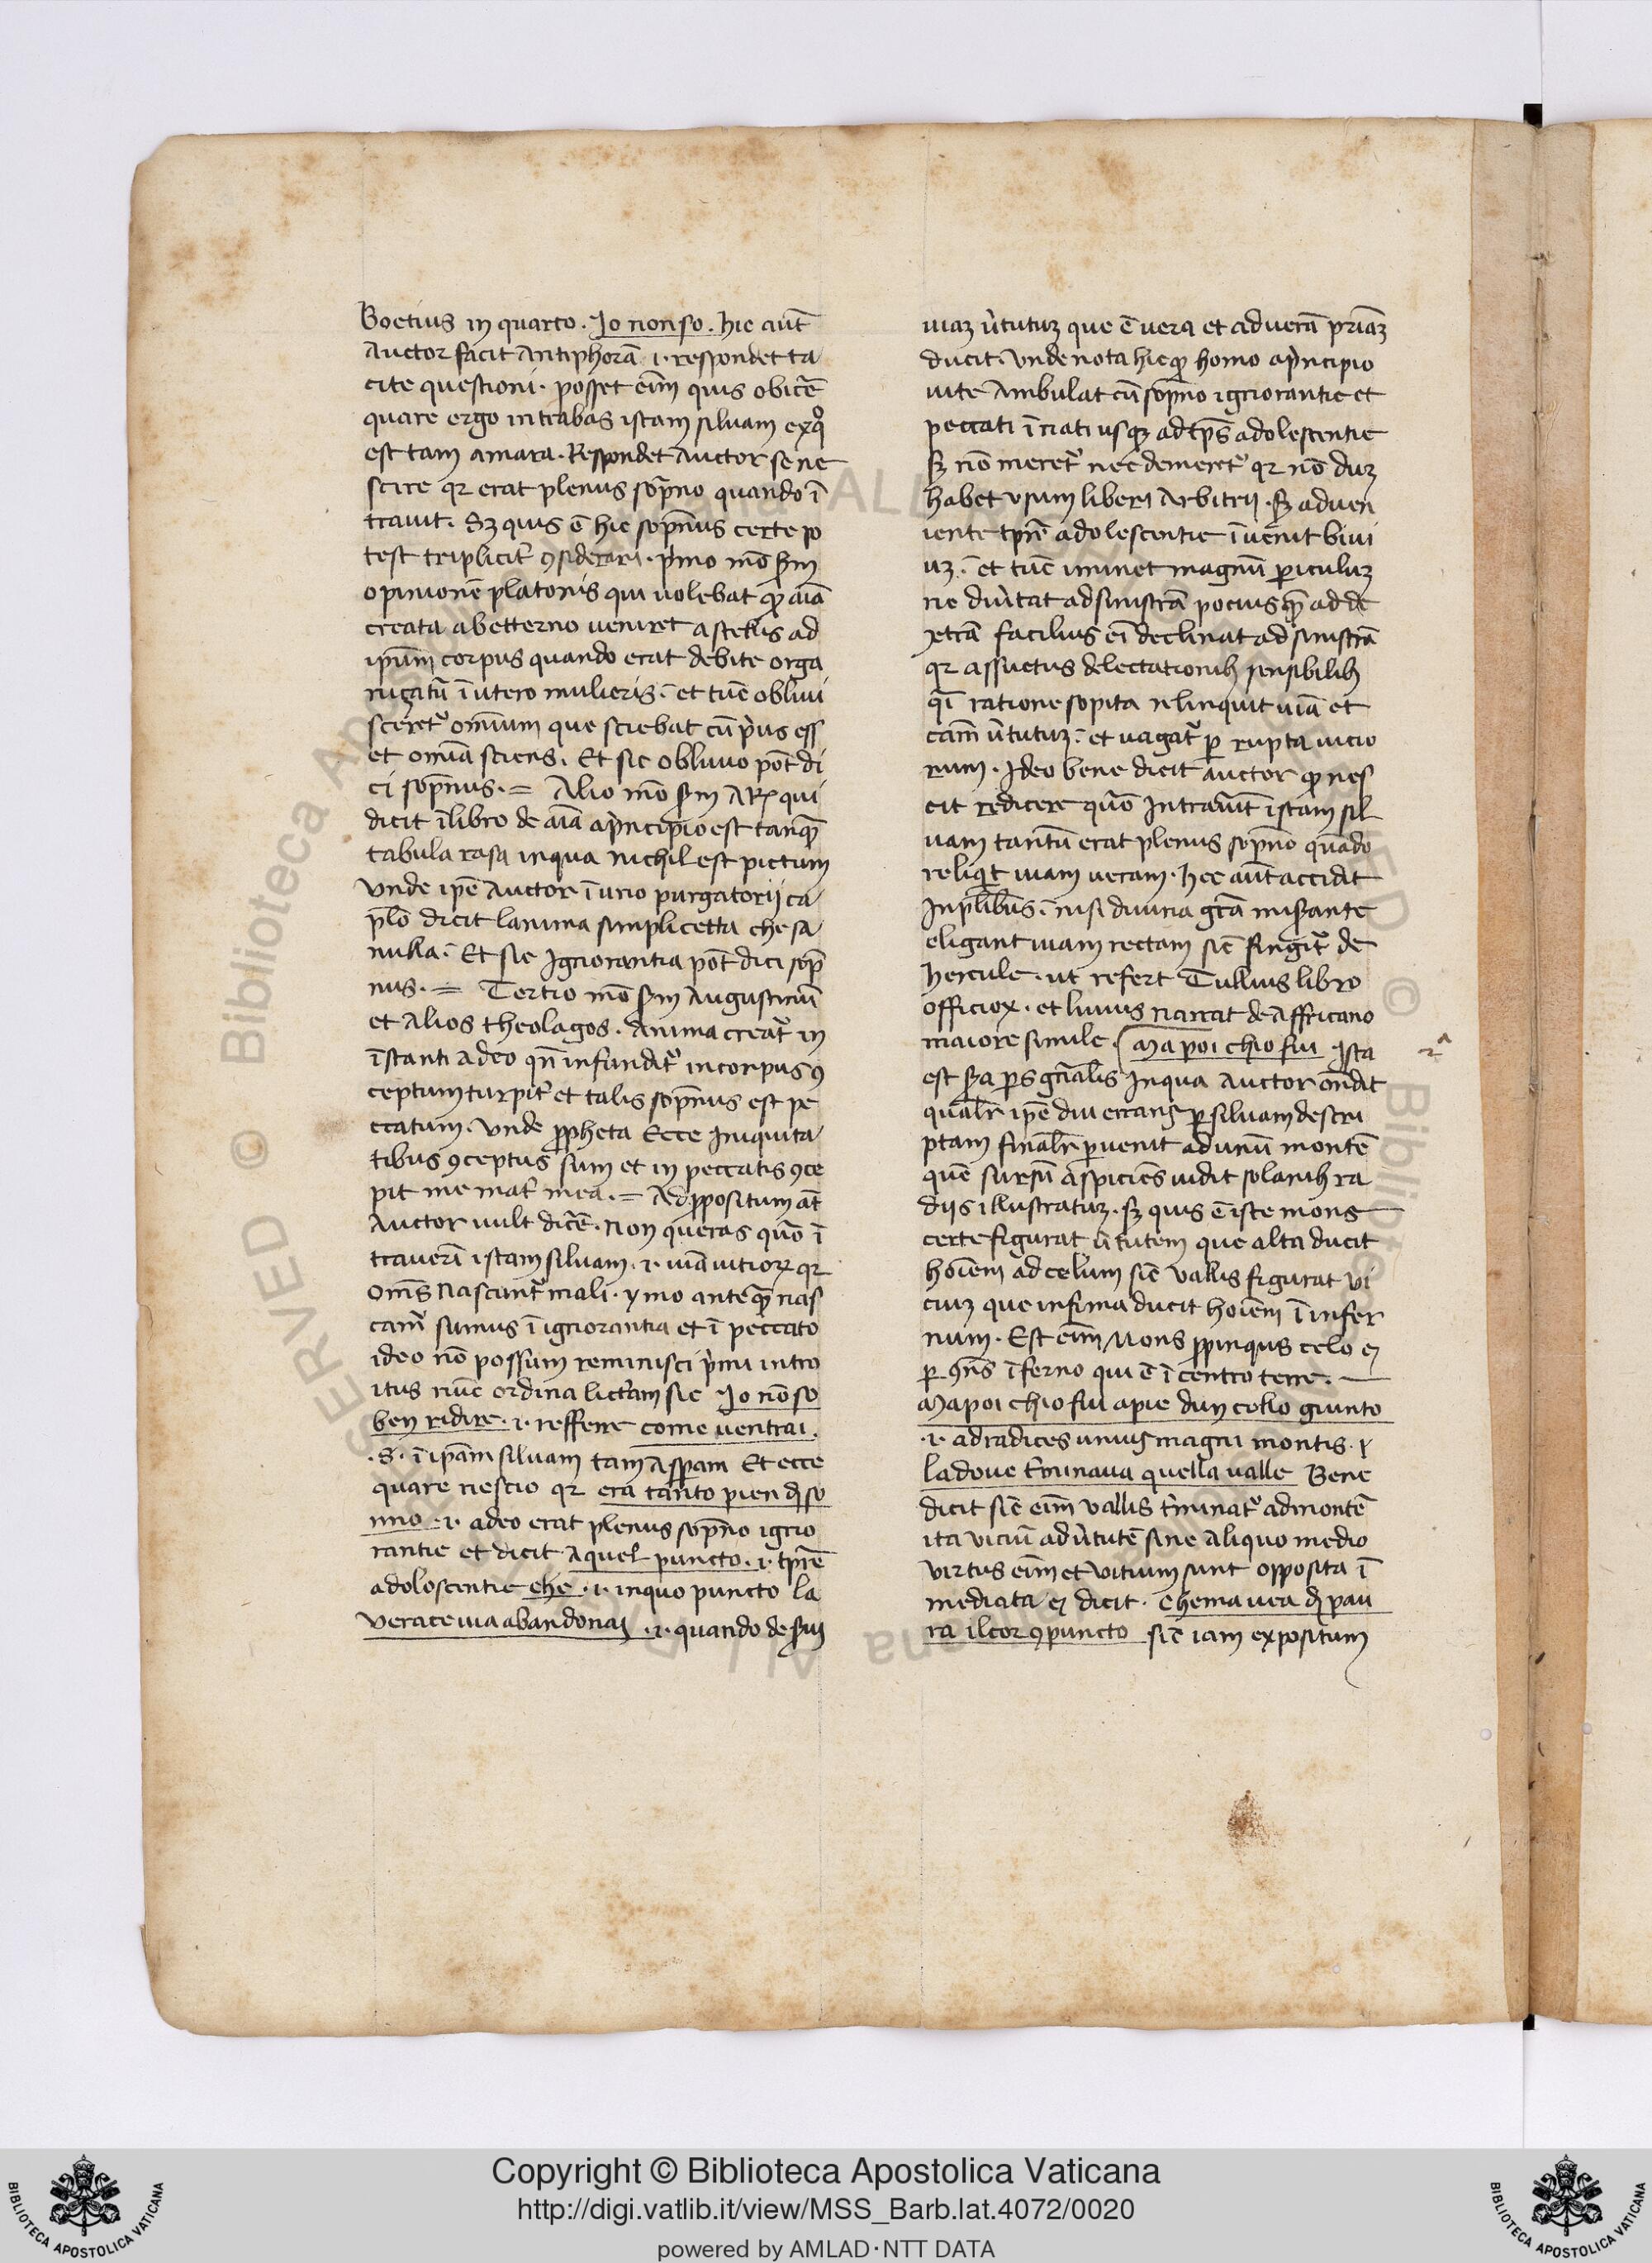 Boetius in quarto. Io non so. hic aut̄
Auctor facit Antiphorā .i. respondet ta
cite questioni. posset eīm quis obicē
quare ergo intrabas istam siluam ex qͦ
est tam amara. Respondet Auctor se ne
scire qr erat plenus sop̄no quando ī
trauit. Sꝫ quis ē hic sop̄nus certe po
test triplicit᷑ ꝯsiderari. p͛mo mō ẜm
opinionē platonis qui uolebat ꝙ aīa
creata ab etterno ueniret a stellis ad
ip̄um corpus quando erat debite orga
niçatū ī utero mulieris. et tūc obliui
sceret᷑ omnium que sciebat cū p͛us ess
et omīa sciens. Et sic obliuio pōt di
ci sop̄nus. = Alio mō ẜm ARꝭ qui
dicit ī libro de aīa a p͛ncipio est tanqꝫ
tabula rasa in qua nichil est pictum
Vnde ip̄e Auctor ī uno purgatorij ca
p̄lo dicit lanima simplicetta che sa
nulla. Et sic Ignorantia pōt dici sop̄
nus. = Tertio mō ẜm Augustinū
et Alios theolagos. Anima creat᷑ in
īstanti adeo qn̄ infundit᷑ in corpus ꝯ
ceptum turpit᷑ et talis sop̄nus est pe
ccatum. Vnde ꝓpheta Ecce Iniquita
tibus ꝯceptus sum et in peccatis ꝯce
pit me mat᷑ mea. = Ad ꝓpositum at̄
Auctor uult dic̄e. Non queras quō ī
trauerī istam siluam .i. uiā uitioꝝ qr
Om̄s nascunt᷑ mali. ymo ante qꝫ nas
cam᷑ sumus ī ignorantia et ī peccato
ideo nō possum reminisci p͛mi intro
itus nūc ordina lict᷑am sic Io nō so
ben ridire .i. refferre come uentrai.
.S. ī ip̄am siluam tam Asp̱am Et ecce
quare nescio qr era tanto pien d̄l so
nno .i. adeo erat plenus sop̄no igno
rantie et dicit A quel puncto .i. tp̄re
adoloscentie che .i. in quo puncto la
verace uia abandonai .i. quando deserui
uiaꝫ u͛tutuꝫ que ē uera et ad uerā pr̄iaꝫ
ducit. Vnde nota hic ꝙ homo a p͛ncipio
uite Ambulat cū sop̄no ignorantie et
peccati ī nati usqꝫ ad tp̄s adolescentie
ẜꝫ nō meret᷑ nec demeret᷑ qr nō duꝫ
habet usum liberi Arbitrij. ẜꝫ adueni
iente tp̄re adolescentie ī uenit biui
uꝫ. et tūc iminet magnū ꝑiculuꝫ
ne diu͛tat ad sinistrā pocius qꝫ ad de
xtrā facilius eī declinat ad sinistrā
qr assuetus delectationibꝫ sensibilibꝫ
qī ratione sopita relinquit uiā et
cam̄ u͛tutuꝫ. et uagat᷑ ꝑ rupta uicio
rum. Ideo bene dicit Auctor ꝙ nes
cit redicere quō Intrauit īstam sil
uam tantū erat plenus sop̄no quādo
reliqit uiam ueram. hec aut̄ accidit
In pl̄ibus. nisi diuina gr̄a iuuante
eligant uiam rectam sic̄ fingit᷑ de
hercule. ut refert Tullius libro
officioꝝ. et liuius narrat de Affricano
maiore simile. Ma poi chio fui Ista
est ẜa pars gn̄alis In qua Auctor ond̄it
qual͛r ip̄e diu errans ꝑ siluam descri
ptam final͛r ꝑuenit ad unū montē
quē sursū aspiciēs uidit solaribꝫ ra
dijs illustratuꝫ. ẜꝫ quis ē iste mons
certe figurat u͛tutem que alta ducit
hoīem ad celum sic̄ vallis figurat vi
ciuꝫ que infima ducit hoīem ī infer
num. Est eīm Mons ꝓpinqus celo ⁊
ꝑ ꝯn̄s īferno qui ē ī centro terre.
Ma poi chio fui a pie dun collo giunto
.i. ad radices unius magni montis. ⁊
la doue t͛minaua quella ualle Bene
dicit sic̄ eīm vallis t͛minat᷑ ad montē
ita viciū ad u͛tutē sine Aliquo medio
virtus eīm et vitium sunt opposita ī
mediata ⁊ dicit. che mauea d̄ pau
ra il cor ꝯpuncto sic̄ iam expositum
2ᵃ
Copyright © Biblioteca Apostolica Vaticana
http://digi.vatlib.it/view/MSS_Barb.lat.4072/0020
powered by AMLAD·NTT DATA
BIBLIOTECA APOSTOLICA VATICANA
BIBLIOTECA APOSTOLICA VATICANA